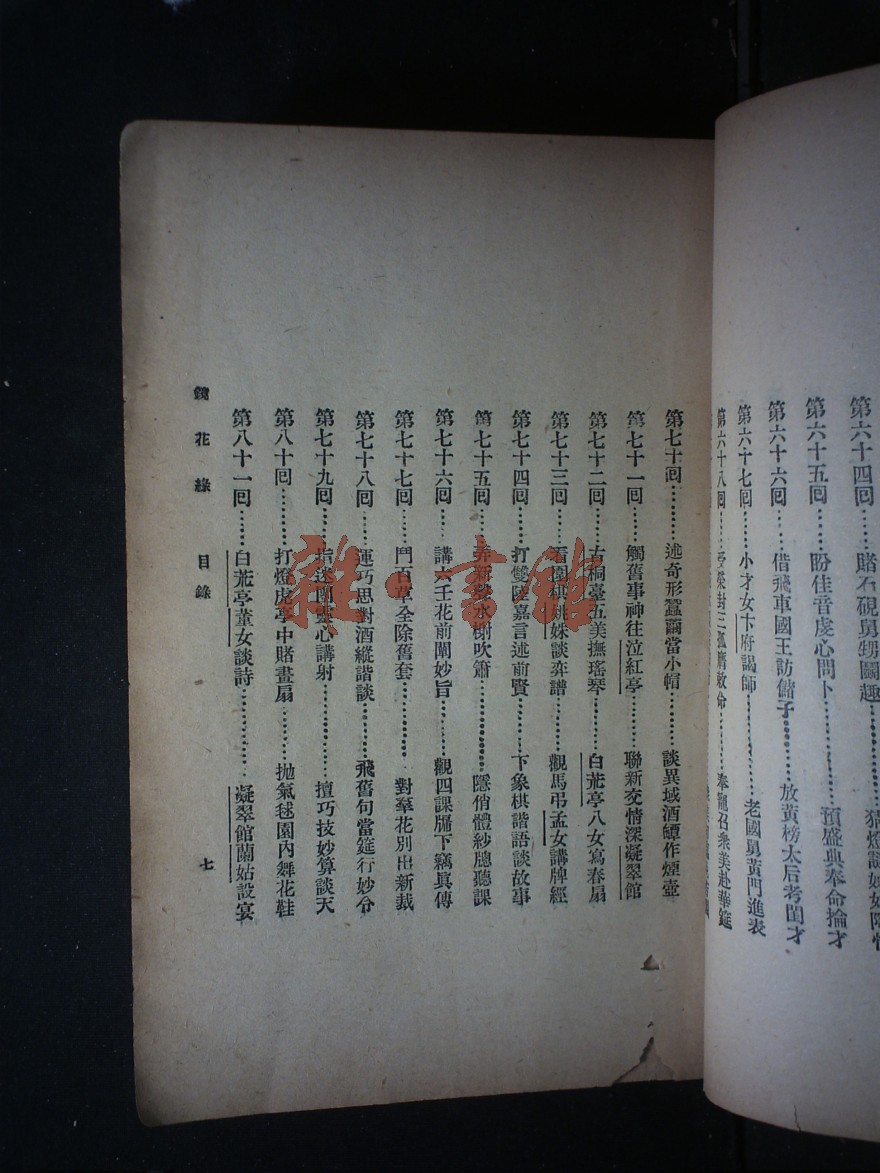 第六十四回……賭石硯舅甥鬭趣……猜燈謎姊妹陶情
第六十五回……盼佳音虔心問卜……預盛典奉命掄才
第六十六回……借飛車國王訪儲子……放黃榜太后考閨才
第六十七回……小才女卞府謁師……老國舅黃門進表
第六十八回……受榮封三孤膺敕命……奉寵召衆美赴華筵
第七十回……述奇形蠶繭當小帽……談異域酒罈作煙壺
第七十一回……觸舊事神往泣紅亭……聯新交情深凝翠館
第七十二回……古桐臺五美撫瑤琴……白荒亭八女寫春扇
第七十三回……看圍棋姚姝談弈譜……觀馬弔孟女講牌經
第七十四回……打雙陸嘉言述前賢……下象棋諧語談故事
第七十五回……弄新聲水榭吹簫……隱俏體紗牕聽課
第七十六回……講六壬花前闡妙旨……觀四課牖下竊眞傳
第七十七回……鬥百草全除舊套……對羣花別出新裁
第七十八回……運巧思對酒縱諧談……飛舊句當筵行妙令
第七十九回……指迷團靈心講射……擅巧技妙算談天
第八十回……打燈虎亭中賭畫扇……拋氣毬園內舞花鞋
第八十一回……白荒亭董女談詩……凝翠館蘭姑設宴
鏡花緣 目錄 七
雜·書館